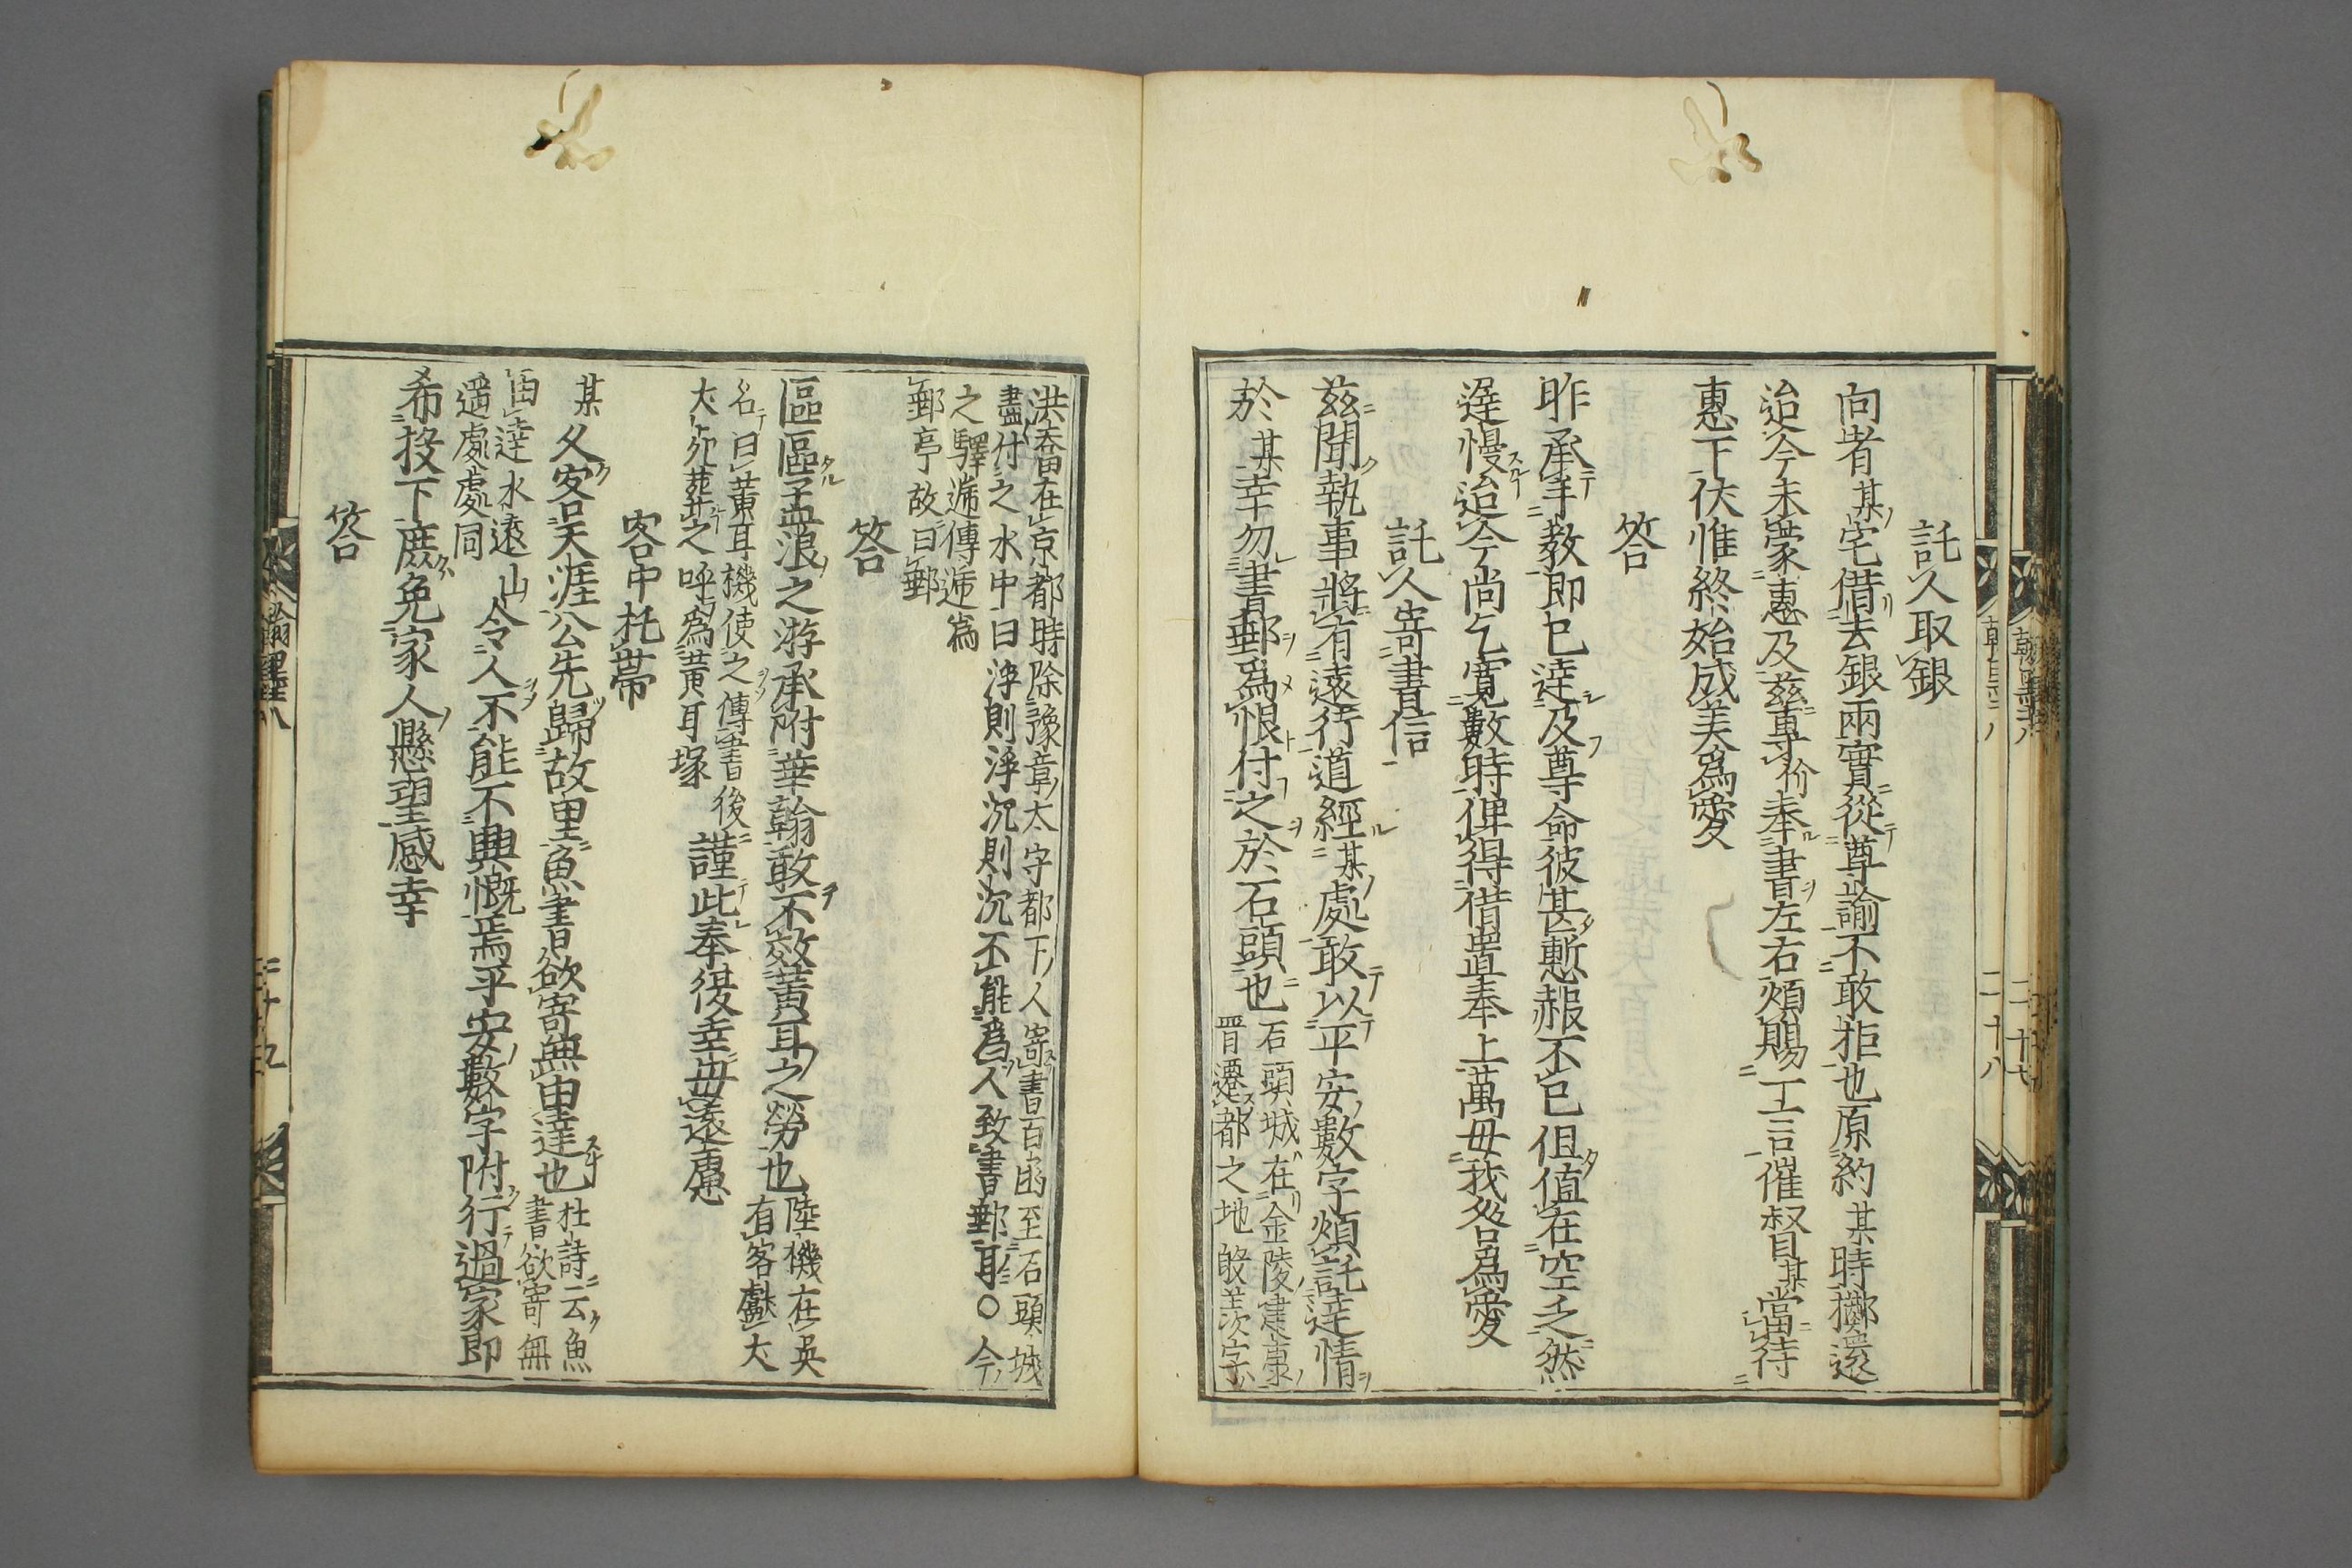 託人取銀
向者某宅借去銀兩實從尊諭不敢拒也原約某時擲還
迨今未蒙惠及茲專价奉書左右煩賜一言催督某當待
惠下伏惟終始成美爲愛
答
昨承手教即已達及尊命彼甚慙赧不已但值在空乏然
遲慢迨今尚乞寬數時俾得借置奉上萬毋我咎爲愛
託人寄書信
茲聞執事將有遠行道經某處敢以平安數字煩託達情
於某幸勿書郵爲恨付之於石頭也
石頭城在金陵建康
晋遷都之地殷羨字
二十八
洪喬在京都時除豫章太守都下人寄書百函至石頭城
盡付之水中曰浮則浮沉則沉不能爲人致書郵耳○今
之驛遞傳遞爲
郵亭故曰郵
答
區區孟浪之游承附華翰敢不效黃耳之勞也
陸機在吳
有客獻犬
名曰黃耳機使之傳書後
犬死葬之呼爲黃耳塚
謹此奉復幸毋遠慮
客中托帶
某久客天涯公先歸故里魚書欲寄無由達也
杜詩云魚
書欲寄無
由達水遠山
遥處處同
令人不能不興慨焉乎安數字附行過家即
希投下庶免家人懸望感幸
答
翰墨 八
二十九